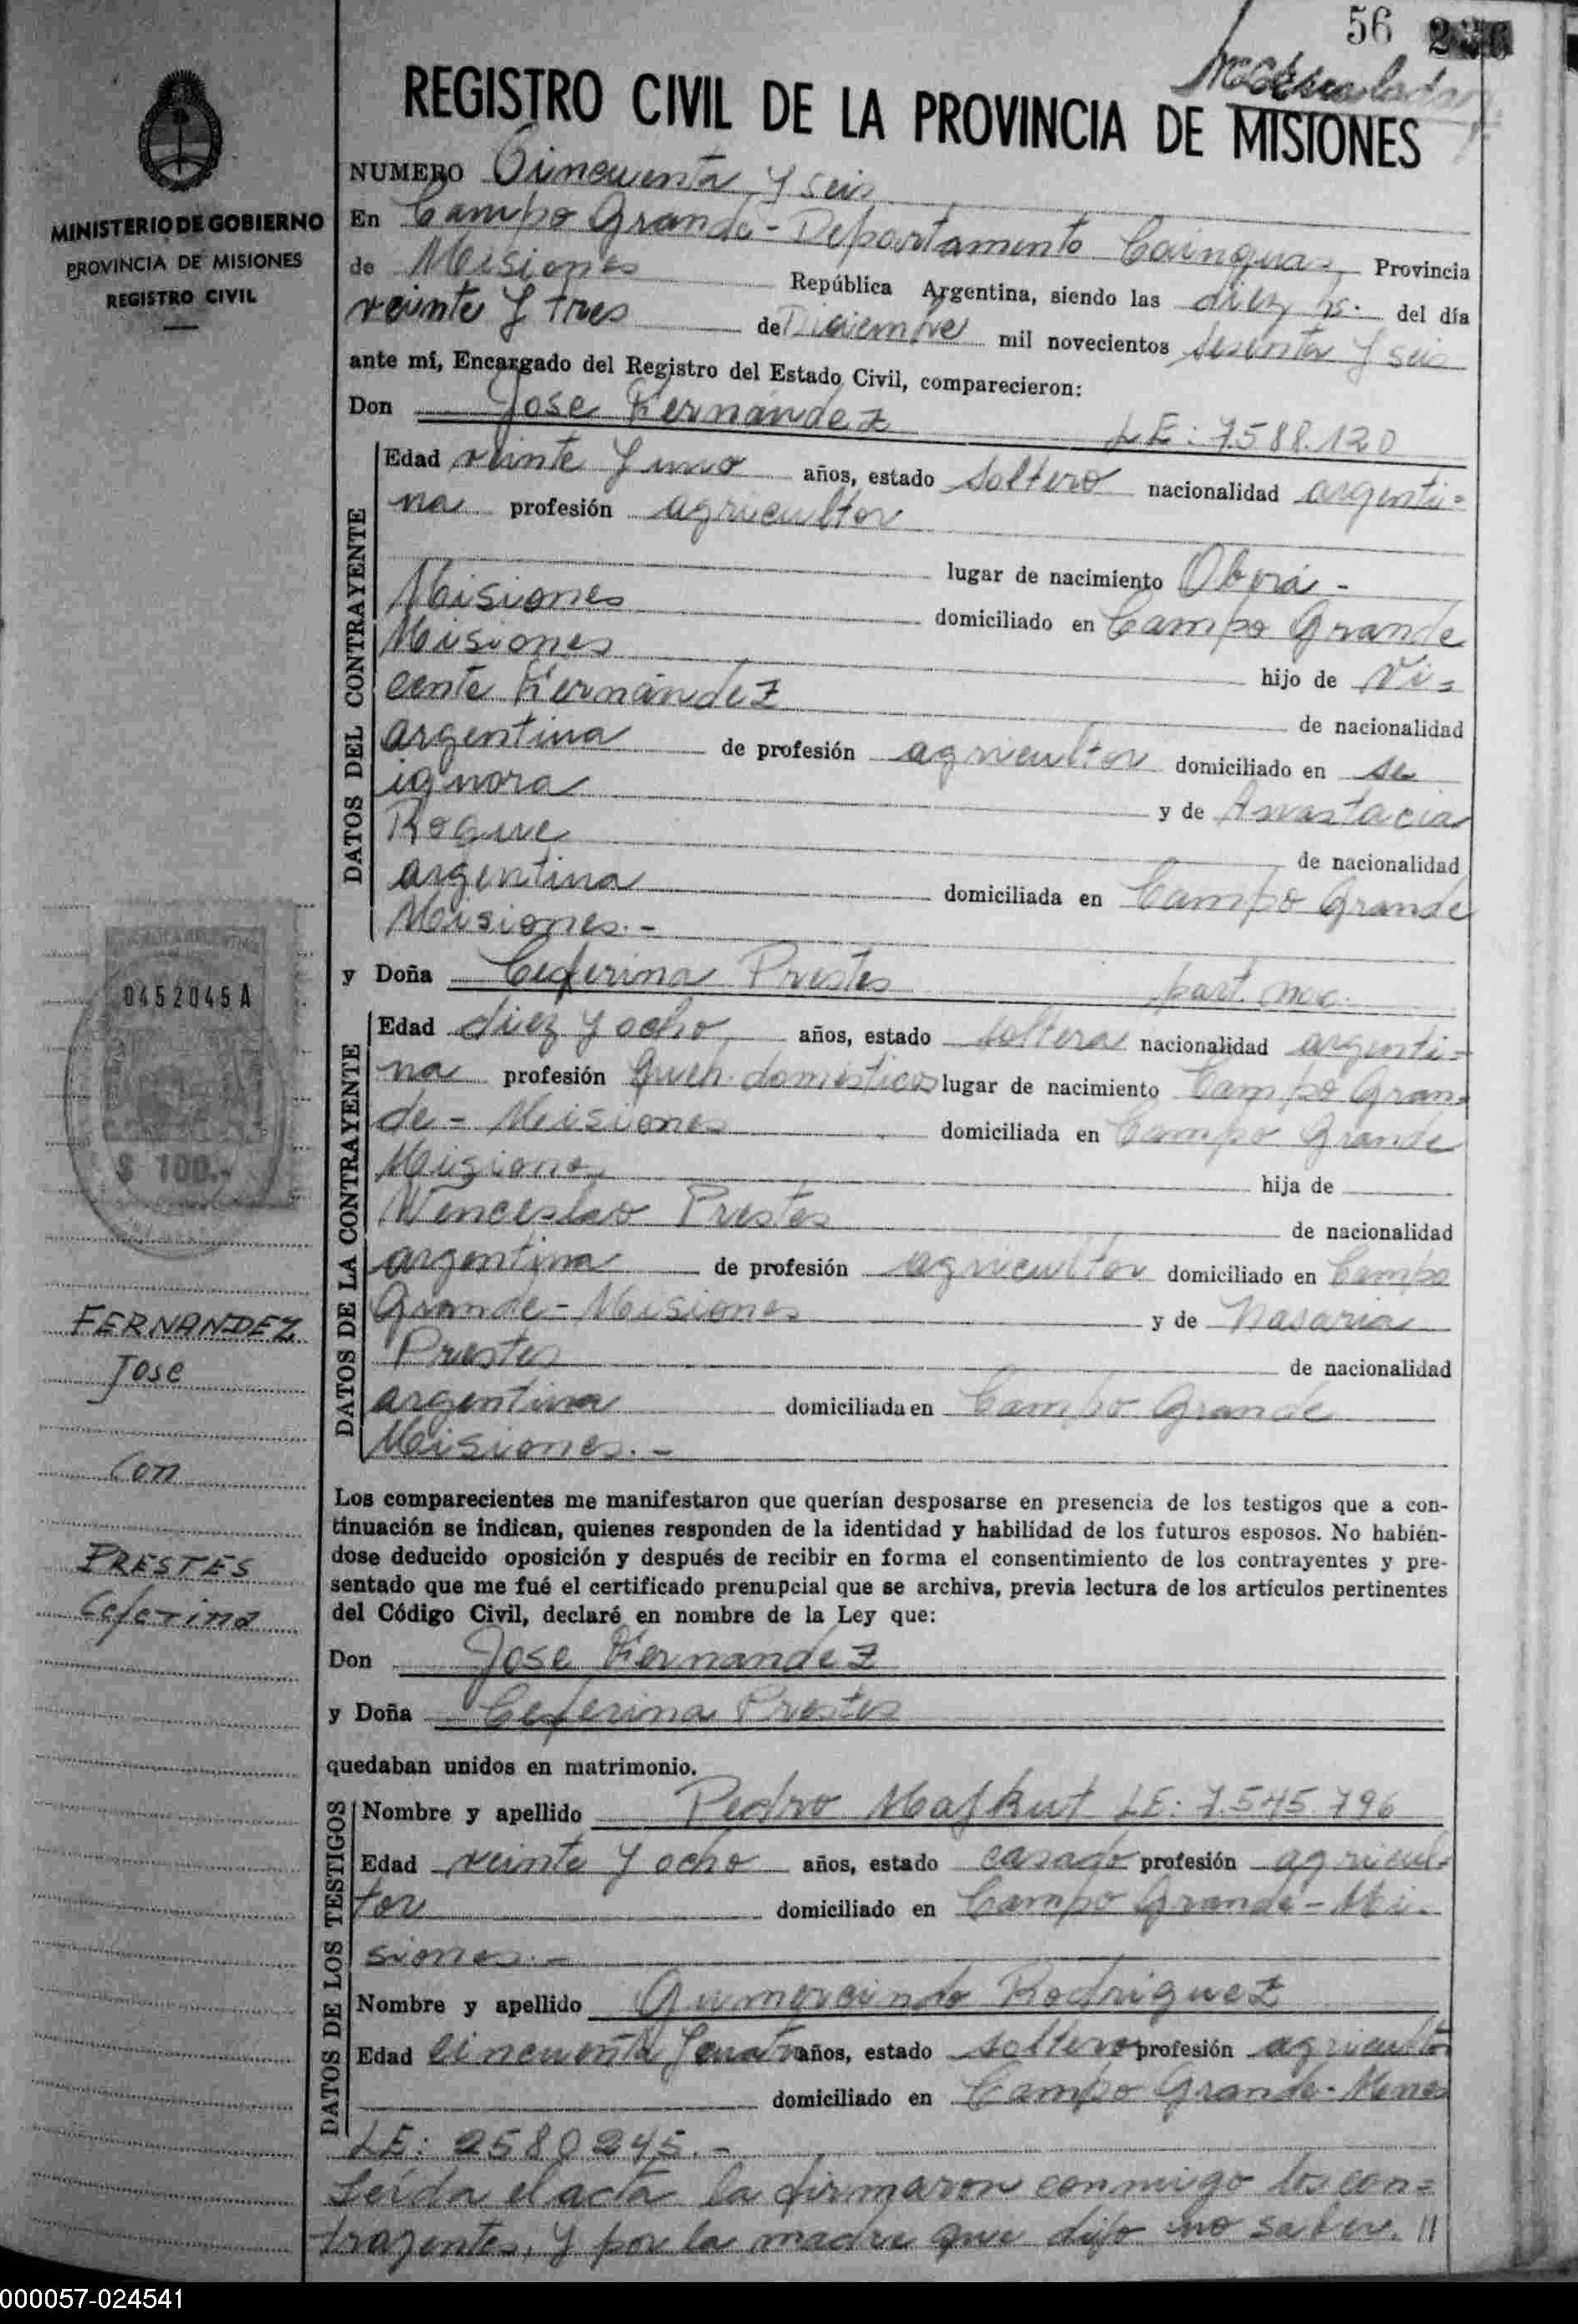 56
REGISTRO CIVIL DE LA PROVINCIA DE MISIONES
MINISTERIO DE GOBIERNO
PROVINCIA DE MISIONES
REGISTRO CIVIL
NUMERO Cincuenta y seis
En Campo Grande - Departamento Cainguas Provincia
de Misiones República Argentina, siendo las diez hs. del día
veinte y tres de Diciembre mil novecientos sesenta y seis
ante mí, Encargado del Registro del Estado Civil, comparecieron:
Don Jose Fernández LE: 7.588.120
DATOS DEL CONTRAYENTE
Edad veinte y uno años, estado soltero nacionalidad argenti=
na profesión agricultor
lugar de nacimiento Oberá -
Misiones domiciliado en Campo Grande
Misiones hijo de Vi=
cente Fernández de nacionalidad
argentina de profesión agricultor domiciliado en se
ignora y de Anastacia
Roque de nacionalidad
argentina domiciliada en Campo Grande
Misiones.-
y Doña Ceferina Prestes part. nac.
DATOS DE LA CONTRAYENTE
Edad diez y ocho años, estado soltera nacionalidad argenti=
na profesión queh. domésticos lugar de nacimiento Campo Gran=
de - Misiones domiciliada en Campo Grande
Misiones hija de
Wenceslao Prestes de nacionalidad
argentina de profesión agricultor domiciliado en Campo
Grande - Misiones y de Nasaria
Prestes de nacionalidad
argentina domiciliada en Campo Grande
Misiones.-
0452045A
$ 100.-
FERNANDEZ
Jose
Con
PRESTES
Ceferina
Los comparecientes me manifestaron que querían desposarse en presencia de los testigos que a con-
tinuación se indican, quienes responden de la identidad y habilidad de los futuros esposos. No habién-
dose deducido oposición y después de recibir en forma el consentimiento de los contrayentes y pre-
sentado que me fué el certificado prenupcial que se archiva, previa lectura de los artículos pertinentes
del Código Civil, declaré en nombre de la Ley que:
Don Jose Fernandez
y Doña Ceferina Prestes
quedaban unidos en matrimonio.
DATOS DE LOS TESTIGOS
Nombre y apellido Pedro Majkut LE: 7.545.796
Edad veinte y ocho años, estado casado profesión agricul-
tor domiciliado en Campo Grande - Mi-
siones.-
Nombre y apellido Gumercindo Rodriguez
Edad cincuenta y cuatro años, estado soltero profesión agricultor
domiciliado en Campo Grande - Mnes
LE: 2580245.-
Leída el acta la firmaron conmigo los con=
trayentes, y por la madre que dijo no saber. //
000057-024541